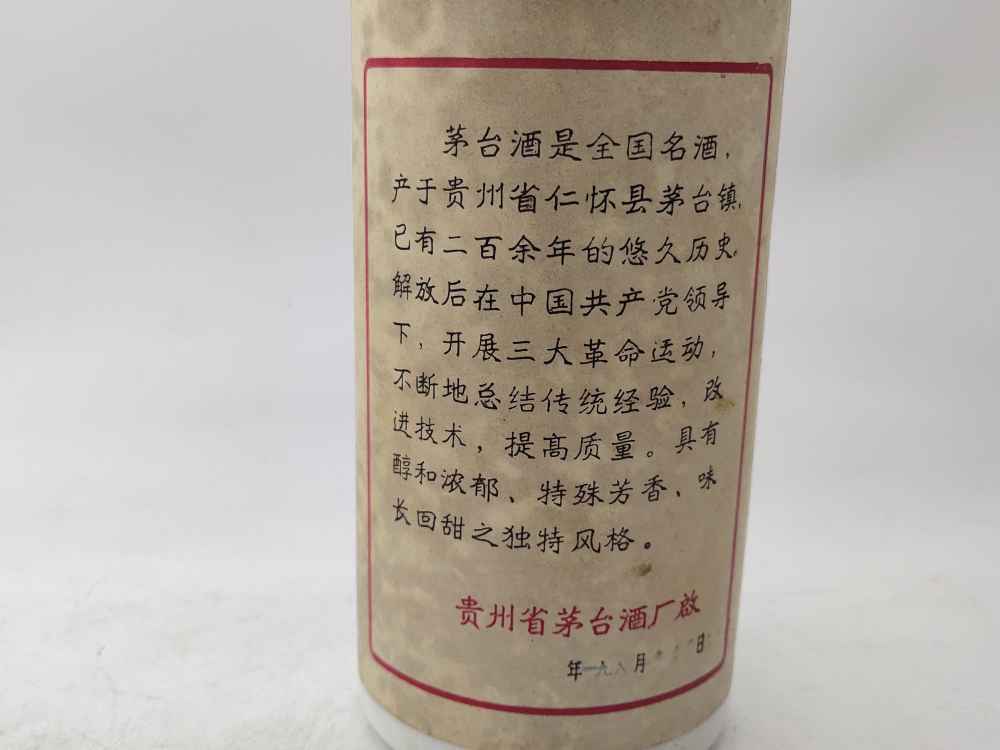 茅台酒是全国名酒，
产于贵州省仁怀县茅台镇，
已有二百余年的悠久历史，
解放后在中国共产党领导
下，开展三大革命运动，
不断地总结传统经验，改
进技术，提高质量。具有
醇和浓郁、特殊芳香、味
长回甜之独特风格。
贵州省茅台酒厂啟
年 月 日